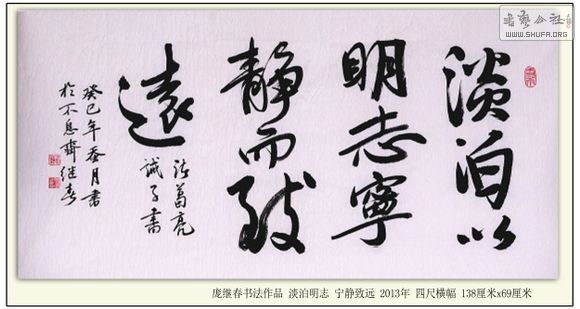 書藝公社
WWW.SHUFA.ORG
淡泊以
明志寧
静而致
遠
诸葛亮
誡子書
癸巳年春月書
於不息齋继春
庞继春书法作品 淡泊明志 宁静致远 2013年 四尺横幅 138厘米x69厘米